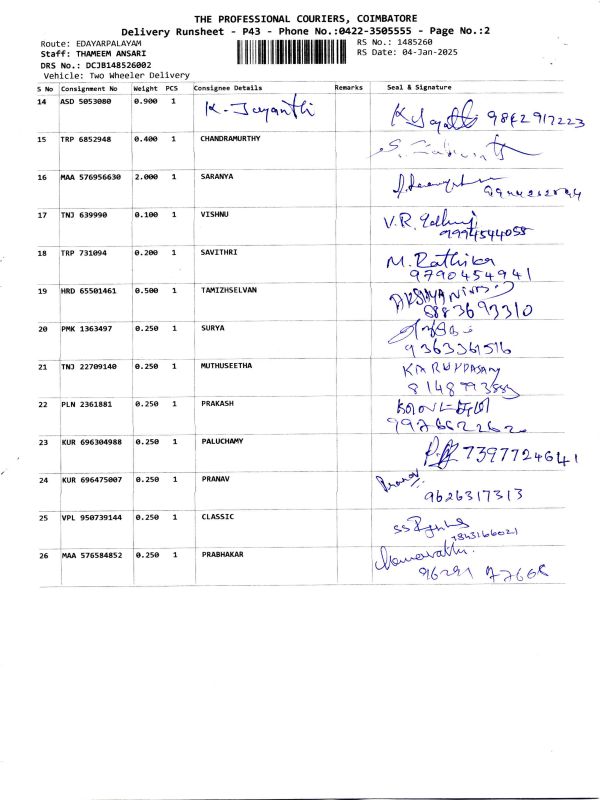 THE PROFESSIONAL COURIERS, COIMBATORE
Delivery Runsheet - P43 - Phone No.:0422-3505555 - Page No.:2
Route: EDAYARPALAYAM RS No.: 1485260
Staff: THAMEEM ANSARI RS Date: 04-Jan-2025
DRS No.: DCJB148526002
Vehicle: Two Wheeler Delivery
S No Consignment No Weight PCS Consignee Details Remarks Seal & Signature
14 ASD 5053080 0.900 1 K. Jayanthi
15 TRP 6852948 0.400 1 CHANDRAMURTHY
16 MAA 576956630 2.000 1 SARANYA
17 TNJ 639990 0.100 1 VISHNU V.R.
9994544055
18 TRP 731094 0.200 1 SAVITHRI M. Rathika
9790454941
19 HRD 65501461 0.500 1 TAMIZHSELVAN
8883693310
20 PMK 1363497 0.250 1 SURYA
9363361516
21 TNJ 22709140 0.250 1 MUTHUSEETHA KARUPPASAMY
22 PLN 2361881 0.250 1 PRAKASH
23 KUR 696304988 0.250 1 PALUCHAMY 7397724641
24 KUR 696475007 0.250 1 PRANAV Pranav
9626317313
25 VPL 950739144 0.250 1 CLASSIC
26 MAA 576584852 0.250 1 PRABHAKAR